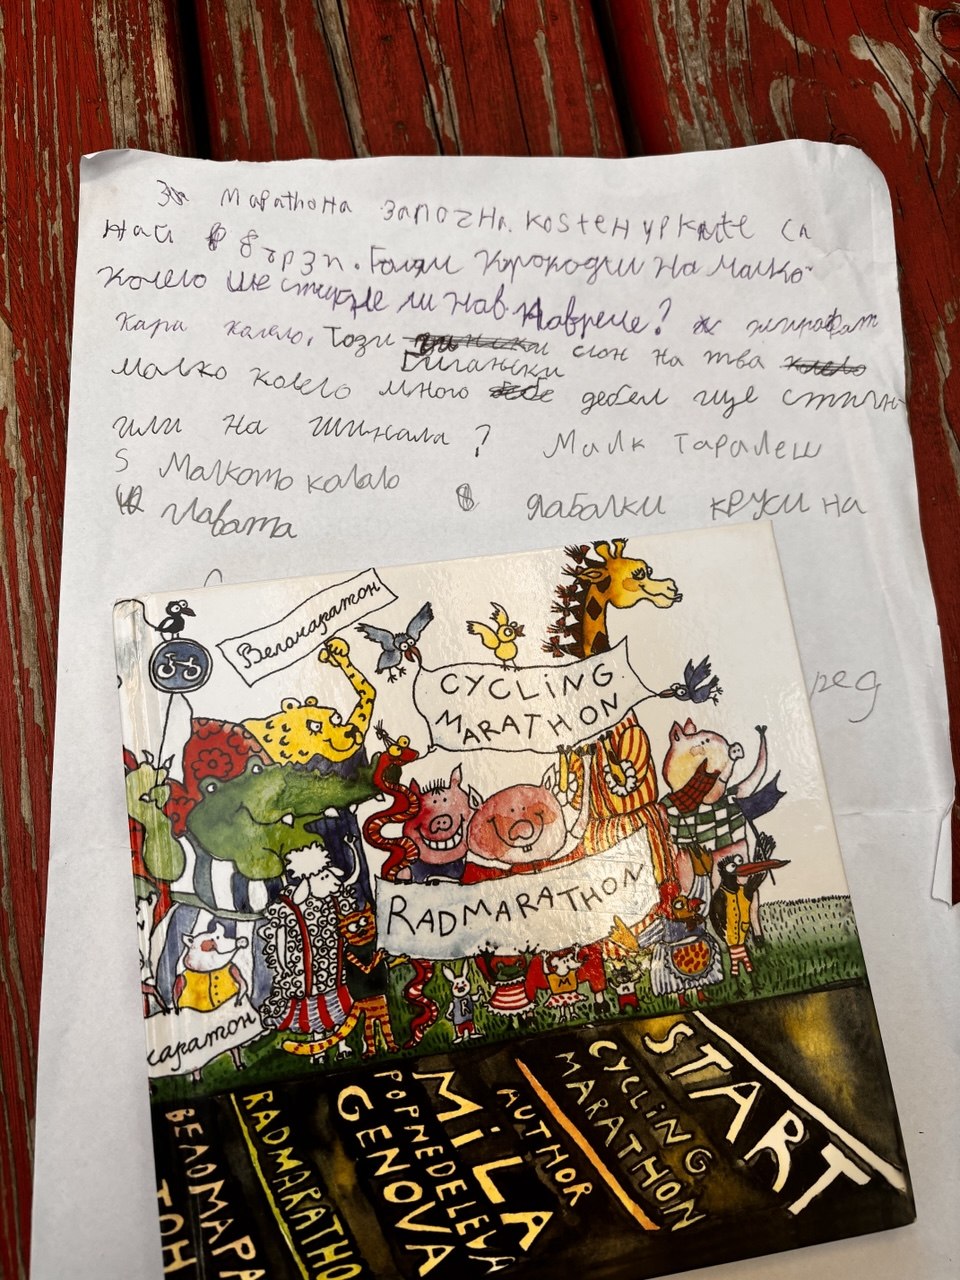 Маратhона запоzна. kosteнурkиte са
най бързи. Голям крокодил на малко
колело ще стигне ли нав наврече?
жирафат
кара колело. Този
Гигански
слон на тва
малко колело много дебел ще стигн
или на шинала? Малк таралеш
S малкото колало
ябалки круши на
главата
ред
Веломаратон
CYCLING
MARATHON
RADMARATHON
каратон
START
CYCLING
MARATHON
AUTHOR
MILA
POPNEDELEVA
GENOVA
RADMARATHO
ВЕЛОМАРА
ТОН